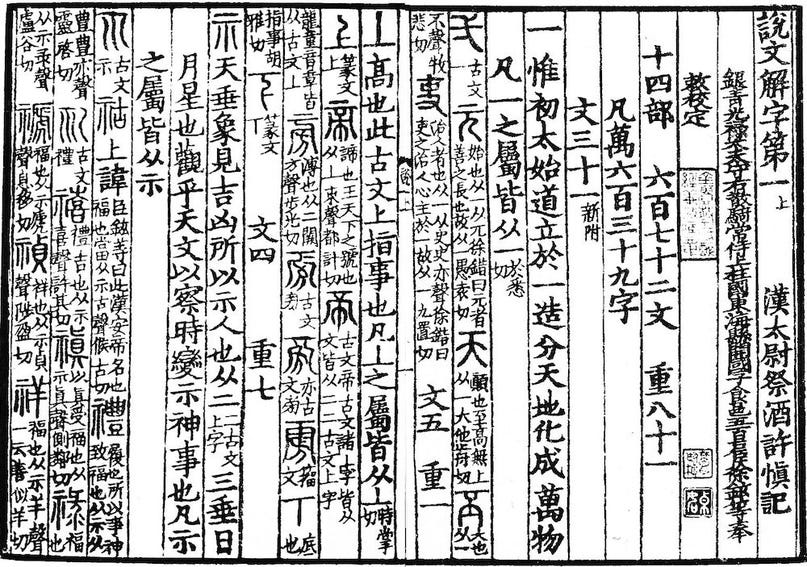 說文解字第一 上 漢太尉祭酒許慎記
銀青光祿大夫守右散騎常侍上柱國東海縣開國子食邑五百戶臣徐鉉等奉
敕校定
十四部 六百七十二文 重八十一
凡萬六百三十九字
文三十一 新附
一 惟初太始道立於一造分天地化成萬物
凡一之屬皆从一 於悉切
弌 古文一 元 始也从一从兀徐鍇曰元者善之長也故从一愚袁切 天 顛也至高無上从一大他前切 丕 大也从一
不聲敷悲切 吏 治人者也从一从史史亦聲徐鍇曰吏之治人心主於一故从一力置切 文五 重一
丄 高也此古文上指事也凡丄之屬皆从丄 時掌切
上 篆文丄 帝 諦也王天下之號也从丄朿聲都計切 帝 古文帝古文諸丄字皆从一篆文皆从二二古文上字
龍童音章皆从古文上 旁 溥也从二闕方聲步光切 旁 古文旁 旁 亦古文旁 雱 籀文 丅 底也
指事胡雅切 下 篆文丅 文四 重七
示 天垂象見吉凶所以示人也从二 二古文上字 三垂日
月星也觀乎天文以察時變示神事也凡示
之屬皆从示
古文示 祜 上諱 臣鉉等曰此漢安帝名也福也當从示古聲候古切 禮 履也所以事神致福也从示从
豊豊亦聲靈啟切 古文禮 禧 禮吉也从示喜聲許其切 禛 以真受福也从示真聲側鄰切 祿 福也
从示彔聲盧谷切 禠 福也从示虒聲息移切 禎 祥也从示貞聲陟盈切 祥 福也从示羊聲一云善似羊切